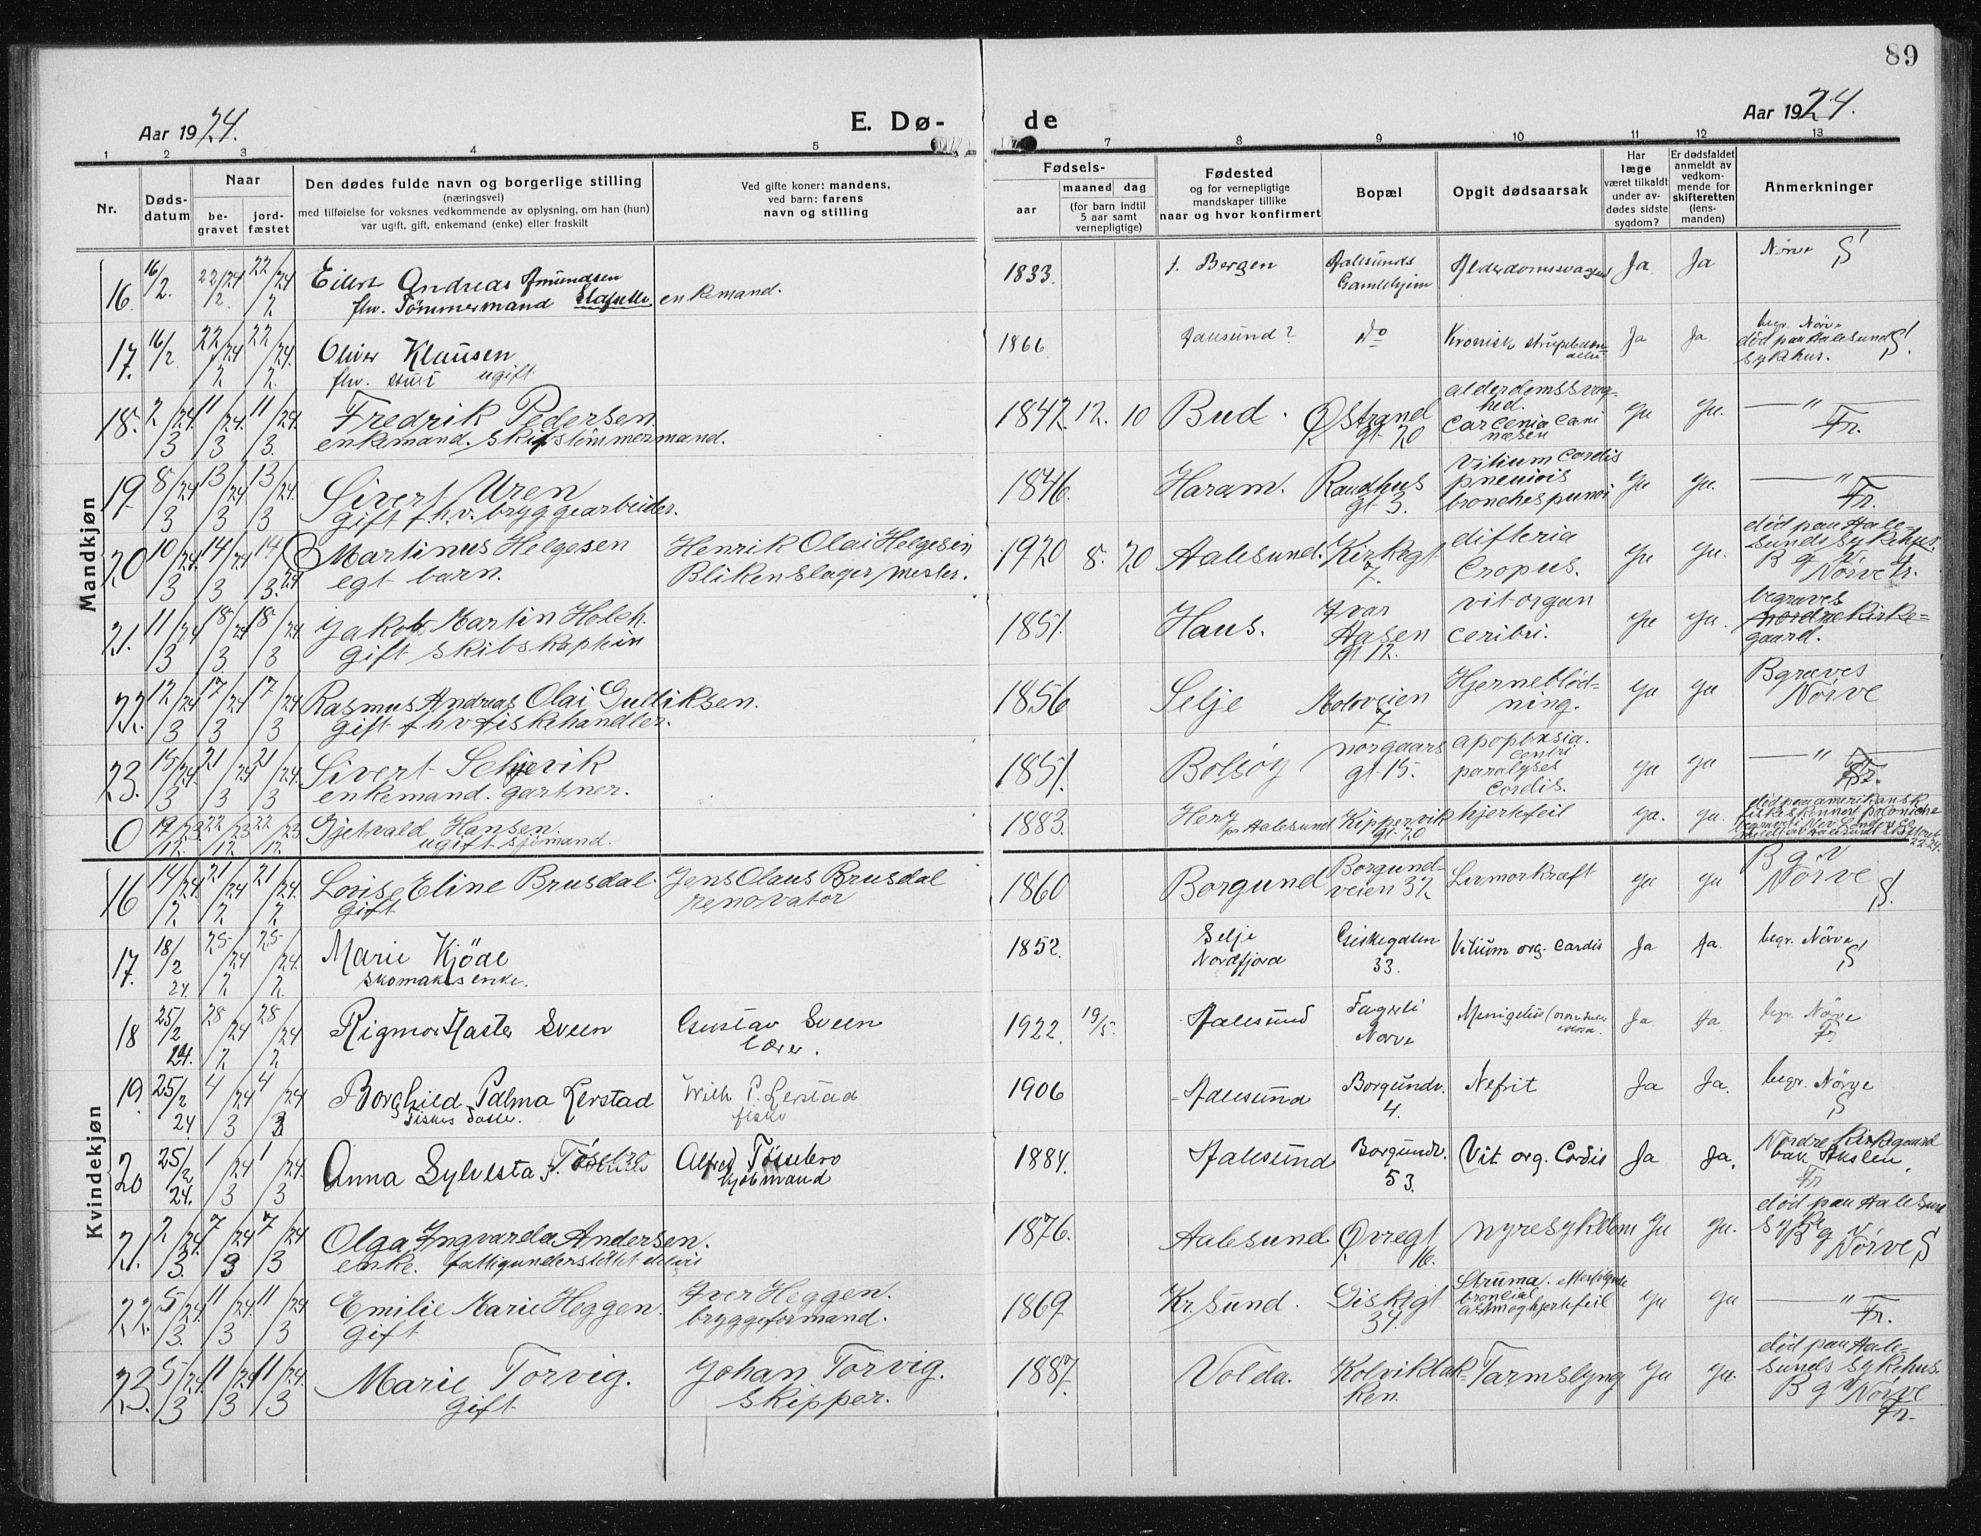 89
Aar 1924.
E. Dø-
de
Aar 1924.
1 2 3 4 5 7 8 9 10 11 12 13
Nr.
Døds-
datum
Naar
be-
gravet
jord-
fæstet
Den dødes fulde navn og borgerlige stilling
(næringsvei)
med tilføielse for voksnes vedkommende av oplysning, om han (hun)
var ugift, gift, enkemand (enke) eller fraskilt
Ved gifte koner: mandens,
ved barn: farens
navn og stilling
Fødsels-
aar
maaned dag
(for barn indtil
5 aar samt
vernepligtige)
Fødested
og for vernepligtige
mandskaper tillike
naar og hvor konfirmert
Bopæl
Opgit dødsaarsak
Har
læge
været tilkaldt
under av-
dødes sidste
sygdom?
Er dødsfaldet
anmeldt av
vedkom-
mende for
skifteretten
(lens-
manden)
Anmerkninger
Mandkjøn
16 16/2. 22/2 24 22/2 24 Eilert Andreas Amundsen
fhv. Tømmermand enkemand.
1833. f. Bergen Aalesunds
Gamlehjem Ja Ja Nørve S
17. 16/2 22/2 24 22/2 24. Oliver Klausen
fhv. ugift
1866 Aalesund? do Kronisk Ja Ja. begr. Nørve
død paa Aalesund
Sykehus. S.
18. 2/3 24 11/3 24. 11/3 24. Fredrik Pedersen
enkemand. skibstømmermand.
1847. 12. 10 Bud. Ø Strand
gt. 20 alderdomssvag-
hed.
Ja Ja. — " —
Fr.
19. 8/3 24 13/3 24 13/3 24. Sivert Uren
gift f.h.v. bryggearbeider.
1846. Haram. Raadhus
gt. 3. Vitium Cordis
Ja Ja. — " —
Fr.
20 10/3 24. 14/3 24 14/3. 24 Martinus Helgesen
egt barn. Henrik Olai Helgesen
Blikenslagermester.
1920 8. 20 Aalesund. Kirkegt
7. difteria
Cropus. Ja Ja. død paa Aale-
sunds Sykehus.
B g v
Nørve Fr.
21. 11/3 24 18/3 24 18/3 24. Jakob Martin Holck.
Gift skibskaptein
1851. Haus. Ivar
Aasen
gt. 12. vit organ
ceribri. Ja Ja. begraves
Nordre Kirke=
gaard.
22. 12/3 24 17/3 24 17/3 24 Rasmus Andreas Olai Gulliksen.
gift f h v fiskehandler.
1856 Selje Moloveien
7. Hjerneblød-
ning. Ja Ja Bgraves
Nørve
23. 15/3 24. 21/3 24 21/3 24. Sivert Seljevik
enkemand. gartner.
1851. Bolsøy Norgaars
gt. 15. apoplexia.
paralyses
Cordis. Ja Ja — " —
Fr.
0 19/12 23. 22/12 23 22/12 23. Gjetvald Hansen.
ugift sjømand.
1883. Kippervik
gt. 20 hjertefeil Ja. Ja. død paa amerikansk
Kvindekjøn
16 14/2 24 21/2 24 21/2 24. Lovise Eline Brusdal.
Gift Jens Claus Brusdal
renovatør
1860 Borgund Borgund-
veien 32 Ja Ja B g v
Nørve S.
17. 18/2 24. 25/2 24 25/2 24. Marie Kjöde
Skomakers enke.
1852. Selje
Nordfjord Giskegaten
33. Vitium org. Cardis Ja Ja. begr. Nørve
S
18 25/2 24. 28/2 24 28/2 24 Rigmor Haster Sveen Gustav Sveen
Lærer.
1922 19/5. Aalesund Fagerli
Nørve Ja Ja. begr. Nørve
Fr
19. 25/2 24 4/3 24 4/3 24 Borghild Palma Lerstad
Wilh P. Lerstad
fisker
1906 Aalesund Borgundv.
4. Nefrit Ja Ja. begr. Nørve
S
20 25/2 24. 1/3 24 1/3 24 Anna Sylvesta F. Tösebro Alfred Tösebro
Kjøbmand
1884. Aalesund Borgundv.
53. Vit org. Cordis Ja Ja. Nordre Kirkegaard
bak Akslen.
Fr
21. 2/3. 24. 7/3 24 7/3 24 Olga Ingvarda Andersen.
enke. fattigunderstöttet
1876. Aalesund Øvregt
16. nyresykdom Ja Ja. død paa Aalesund
Syke
B g v
Nørve S
22. 5/3. 24 11/3 24. 11/3 24 Emilie Marie Heggen.
Gift Iver Heggen.
bryggeformand.
1869. Kr. Sund. Giskegt
34. Struma.
Ja Ja — " —
Fr.
23. 5/3 24 11/3 24 11/3 24. Marie Torvig.
Gift Johan Torvig.
Skipper.
1887. Volda. Kolvikbak-
ken. Tarmslyng Ja Ja. død paa Aale-
sunds sykehus.
B g v Nørve
Fr.